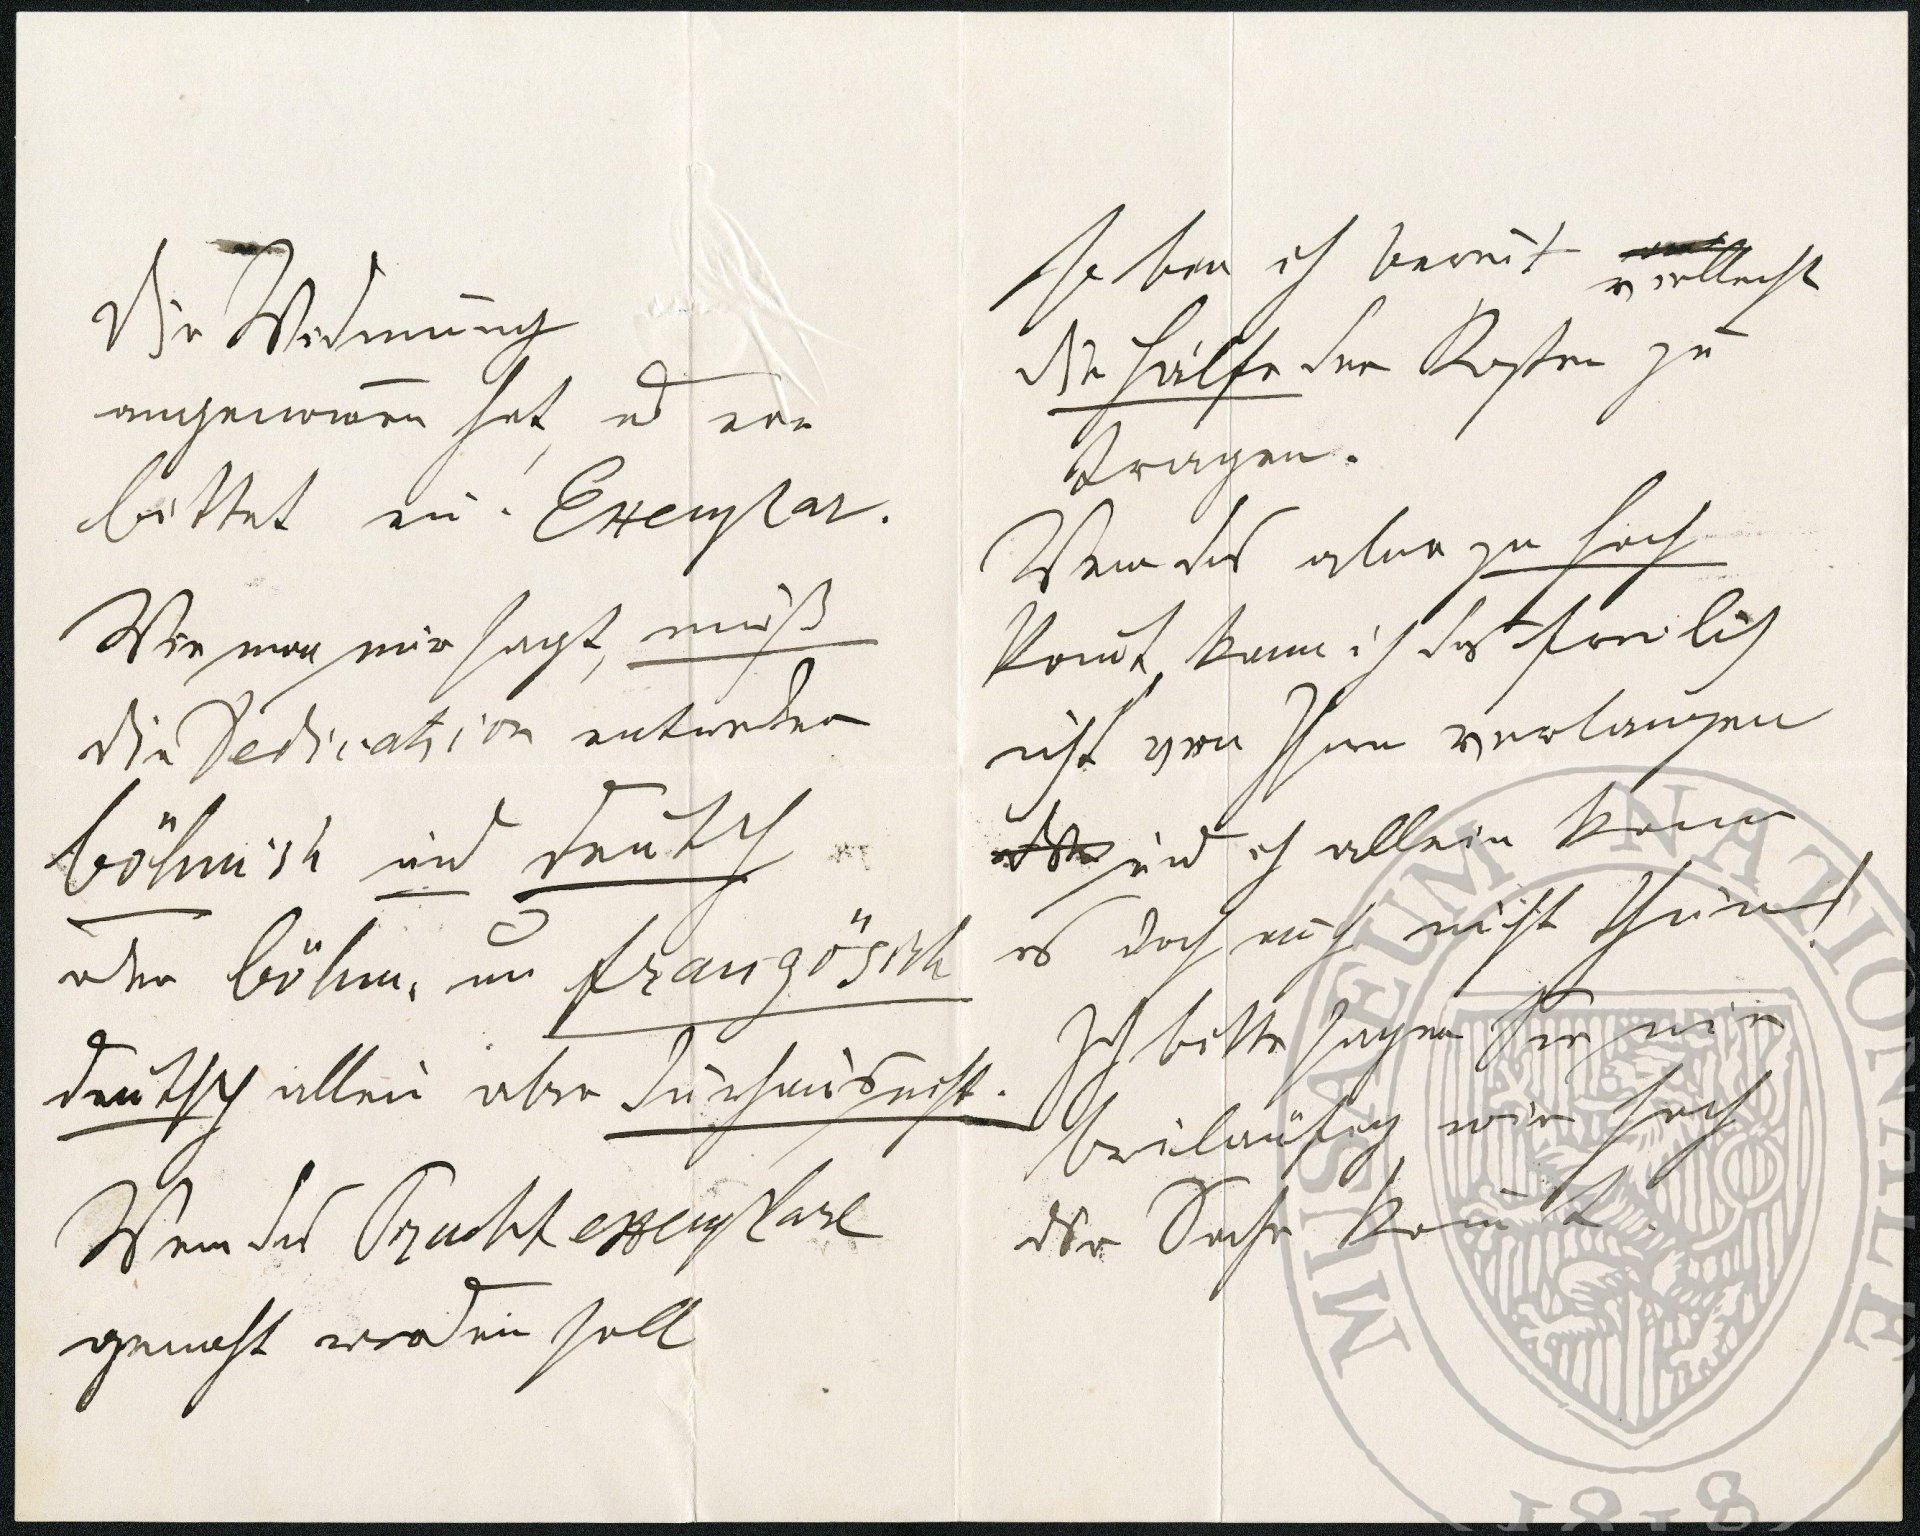 die Widmung
angenomen hat, und er
bittet ein Exemplar.
Wie man mir sagt, muß
die Dedication entweder
böhmish und deutsch
oder böhm. un französish
deutsch allein aber durchaus nicht.
Wenn das Prachtexemplare
gemacht werden soll
so bin ich bereit vielleicht
die Hälfte der Kosten zu
tragen.
Wenn das aber zu hoch
komt, kann ich das freilich
nicht von Ihnen verlangen
und ich allein kann
es doch auch nicht thun!
Ich bitte sagen Sie mir
beiläufig wie hoch
die Sache komt.
MUSAEUM NATIONALE
1818